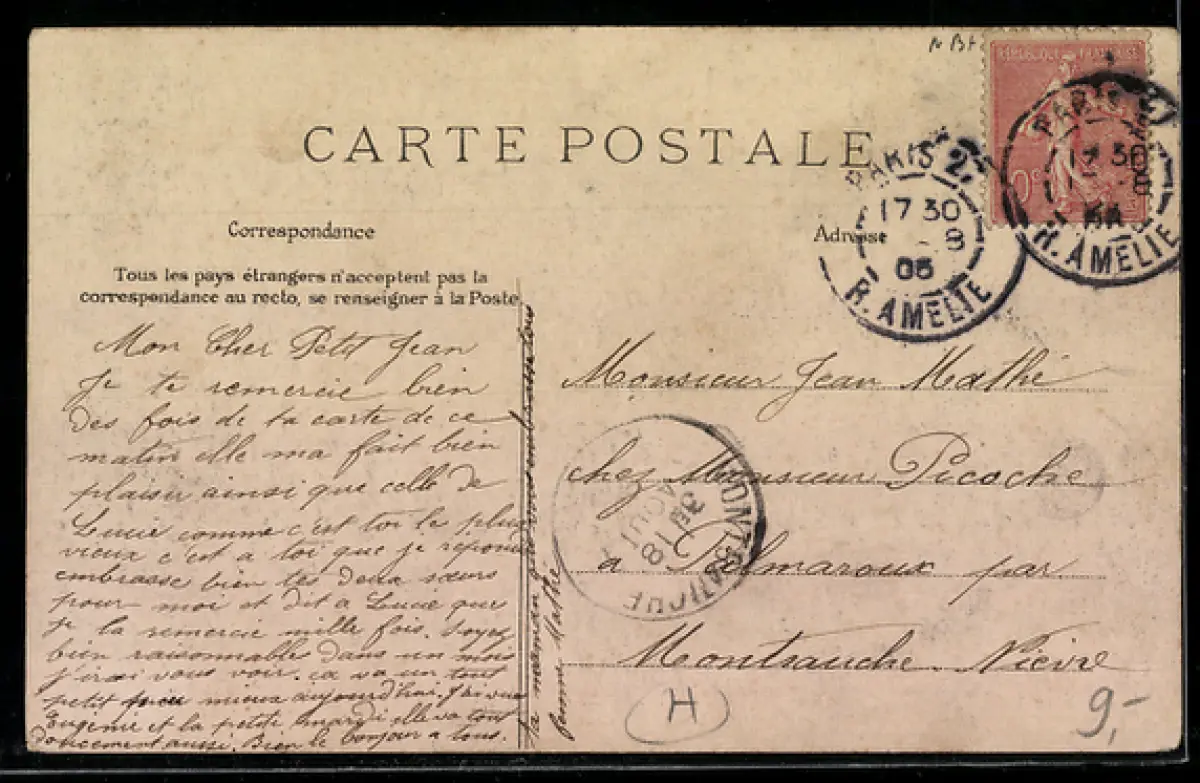 CARTE POSTALE
Correspondance
Tous les pays étrangers n'acceptent pas la
correspondance au recto, se renseigner à la Poste.
Mon Cher Petit Jean
Je te remercie bien
des fois de ta carte de ce
matin elle ma fait bien
plaisir ainsi que celle de
Lucie comme c'est toi le plus
vieux c'est a toi que je réponds
embrasse bien tes deux sœurs
pour moi et dit a Lucie que
je la remercie mille fois. Soyez
bien raisonnables dans un mois
j'irai vous voir. ça va un tout
petit peu mieux aujourd'hui. J'ai vu
Eugenie et la petite mardi elle va tout
doucement aussi. Bien le bonjour a tous.
ta maman qui vous embrasse tous
femme Mathé
Adresse
Monsieur Jean Mathé
chez Monsieur Picoche
a Palmaroux par
Montsauche. Nièvre
RÉPUBLIQUE FRANÇAISE
PARIS
17 30
R. AMELIE
PARIS
17 30
8
05
R. AMELIE
MONTSAUCHE
3E
18
AOUT
H
9,-